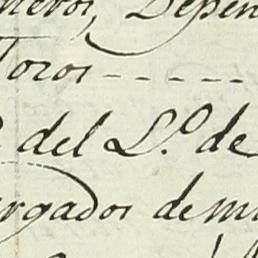 neros, Depen
Toros - - - - -
del L.º de
rgados de mu